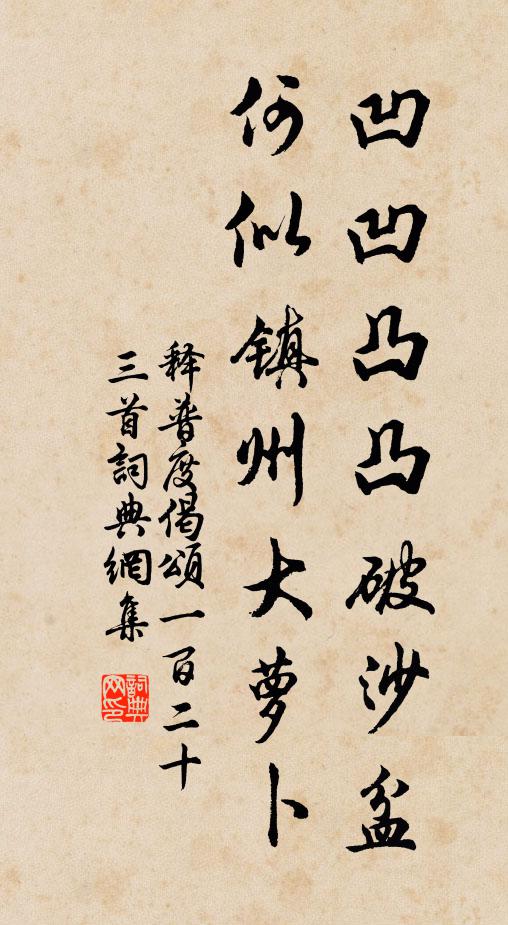 凹凹凸凸破沙盆
何似镇州大萝卜
释普度偈颂一百二十
三首詞典網集
詞典
网印